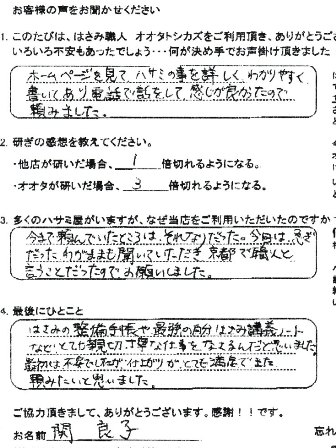 お客様の声をお聞かせください
1. このたびは、はさみ職人 オオタトシカズをご利用頂き、ありがとうご
いろいろ不安もあったでしょう・・・何が決め手でお声掛け頂きました
ホームページを見て ハサミの事を詳しく わかりやすく
書いてあり電話で話をして 感じが良かったので
頼みました。
2. 研ぎの感想を教えてください。
・他店が研いだ場合、 1 倍切れるようになる。
・オオタが研いだ場合、 3 倍切れるようになる。
3. 多くのハサミ屋がいますが、なぜ当店をご利用いただいたのですか
今まで頼んでいたところは それなりだった。今回は
だった わがままも聞いていただき 京都で職人と
言うことだったのでお願いしました。
4. 最後にひとこと
はさみの 整備手帳や 最強の自分 はさみ 講義ノート
など とても親切 丁寧な仕事を なさるんだと思いました
は不安でしたが 仕上がりが とても満足でまた
頼みたいと思いました。
ご協力頂きまして、ありがとうございます。感謝！！です。
お名前 関 良子
忘れ